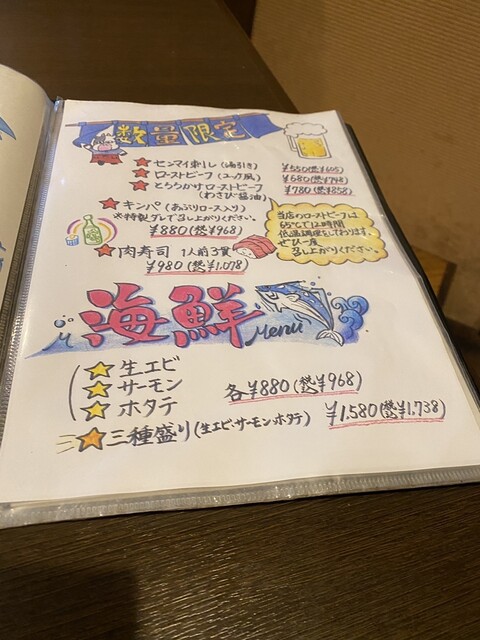 数量限定
★センマイ刺し(湯引き) ¥550(税込¥605)
★ローストビーフ(ユッケ風) ¥680(税込¥748)
★とろろかけローストビーフ ¥780(税込¥858)
(わさび醤油)
★キンパ(あぶりロース入り)
※特製ダレで召し上がりください。
¥880(税込¥968)
★肉寿司 1人前3貫
¥980(税込¥1,078)
当店のローストビーフは
65℃で12時間
低温調理をしております。
ぜひ一度
召し上がりください。
海鮮
Menu
★生エビ
★サーモン
★ホタテ
各¥880(税込¥968)
★三種盛り(生エビ・サーモン・ホタテ) ¥1,580(税込¥1,738)